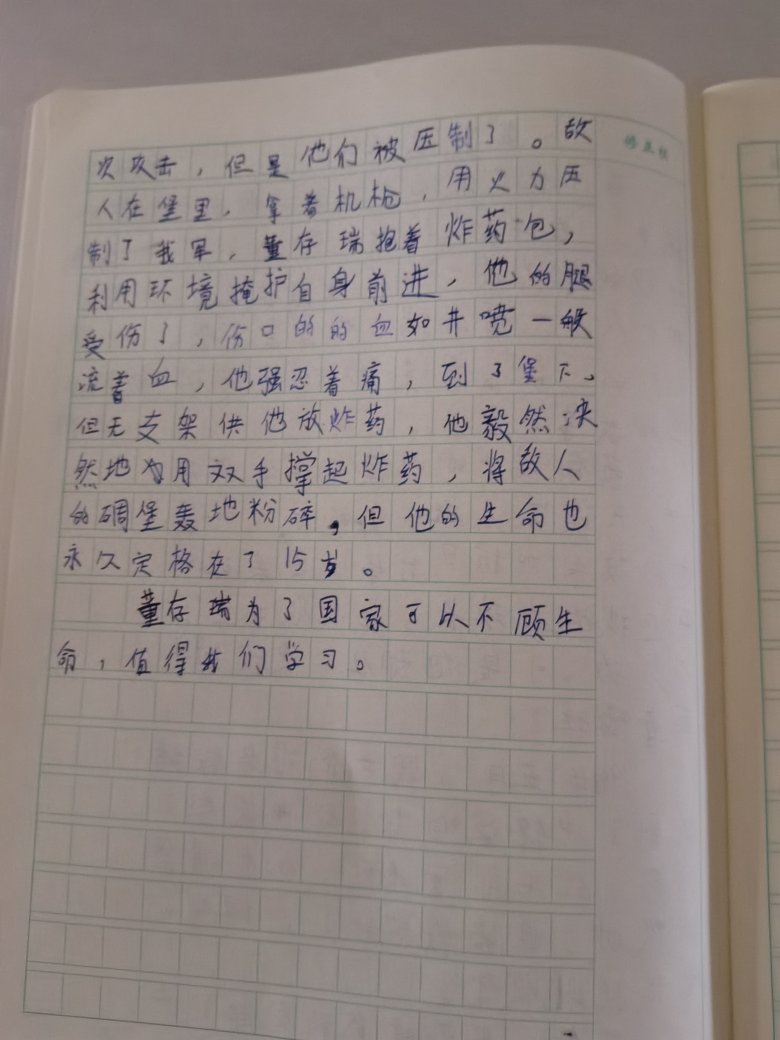 修正栏
次攻击，但是他们被压制了。敌
人在堡里，拿着机枪，用火力压
制了我军，董存瑞抱着炸药包，
利用环境掩护自身前进，他的腿
受伤了，伤口的的血如井喷一般
流着血，他强忍着痛，到了堡下、
但无支架供他放炸药，他毅然决
然地用双手撑起炸药，将敌人
的碉堡轰地粉碎，但他的生命也
永久定格在了15岁。
董存瑞为了国家可以不顾生
命，值得我们学习。